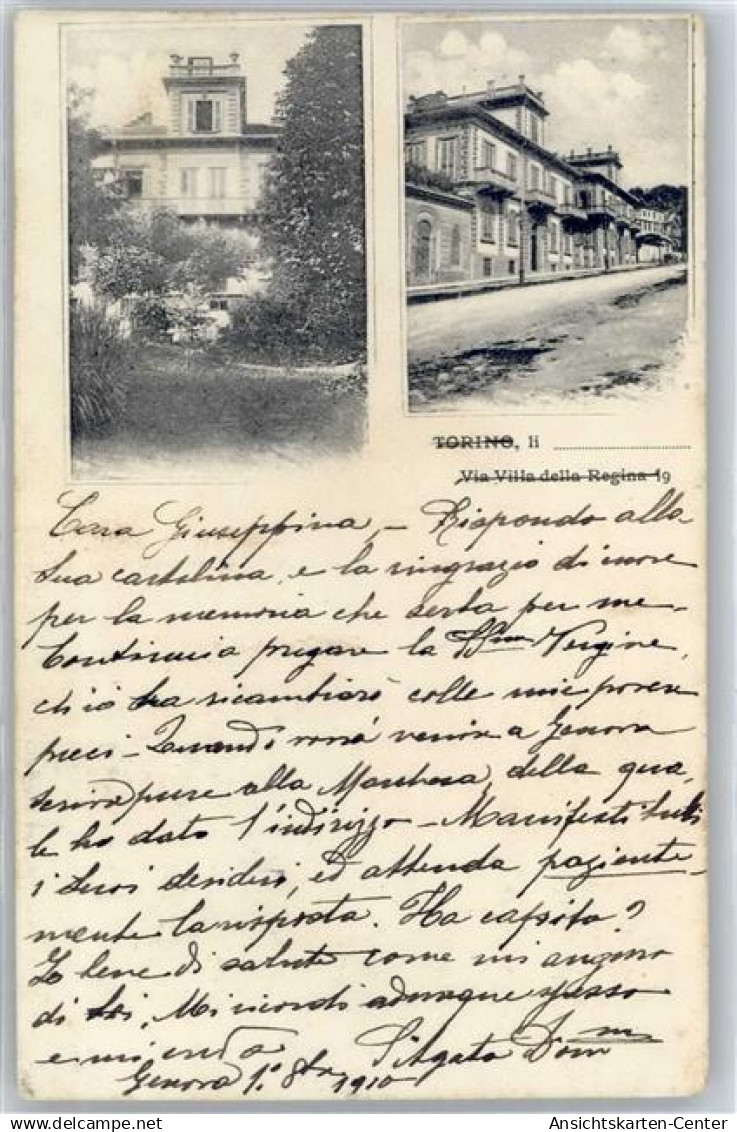 TORINO, li
Via Villa della Regina 19
Cara Giuseppina, - Rispondo alla
Sua cartolina, e la ringrazio di cuore
per la memoria che serba per me -
Continui a pregare la SSma Vergine,
ch'io ricambierò colle mie povere
preci - Quando vorrà venire a Genova
scriva pure alla Marchesa, della qua,
le ho dato l'indirizzo - Manifesti tutti
i suoi desideri, ed attenda paziente-
mente la risposta. Ha capito?
Sto bene di salute come mi auguro
di Lei. Mi ricordi adunque spesso
e mi creda
Genova 1° 8bre 1910